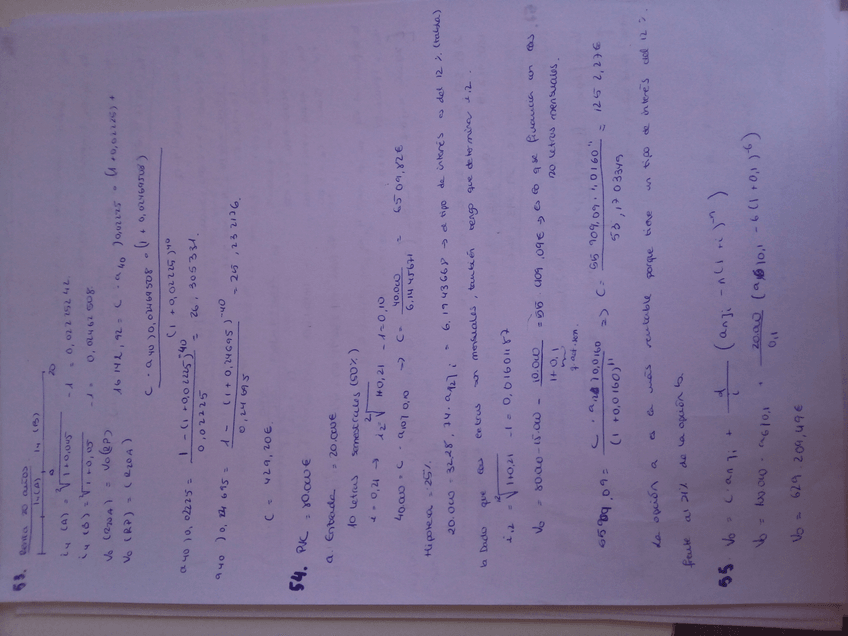 53. Renta 20 años
i₄(A) i₄(B) 20
i₄(A) = ⁴√1+0,095 - 1 = 0,0225242
i₄(B) = √1+0,05 - 1 = 0,02469508
V₀(R20A) = V₀(RP)
V₀(RP) = (R20A)
16142,92 = C · a40⌉0,02275 = (1+0,02225) +
C · a40⌉0,02469508 = (1+0,02469508)
(1+0,02225)⁴⁰
a40⌉0,02225 = 1-(1+0,02225)⁻⁴⁰ / 0,02225 = 26,305331
a40⌉0,24695 = 1-(1+0,24695)⁻⁴⁰ / 0,24695 = 25,232176
C = 429,20€
54. PK = 80.000€
a. Entrada = 20.000€
10 letras semestrales (50%)
i = 0,21 → i₂ = ²√1+0,21 - 1 = 0,10
40.000 = C · a10⌉0,10 → C = 40.000 / 6,1445671 = 6509,82€
Hipoteca = 25%
20.000 = 3228,74 · a12⌉i = 6,1943668 → a tipo de interés es del 12% (tablas)
b. Dado que las letras son mensuales, también tengo que determinar i₁₂
i₁₂ = ¹²√1+0,21 - 1 = 0,01601187
V₀ = 80.000 - 15.000 - 10.000 / 1+0,1 = 55.909,09€ → es lo que financia con las
20 letras mensuales.
55909,09 = C · a⌉0,0160 / (1+0,0160)¹¹ => C = 55.909,09 · 1,0160¹¹ / 53,1703349 = 1252,27€
La opción a es la más rentable porque tiene un tipo de interés del 12%
frente al 21% de la opción b.
55 V₀ = C · an⌉i + d / i (an⌉i - n(1+i)⁻ⁿ)
V₀ = 100.000 · a6⌉0,1 + 20.000 / 0,1 (a6⌉0,1 - 6(1+0,1)⁻⁶)
V₀ = 629.209,49€